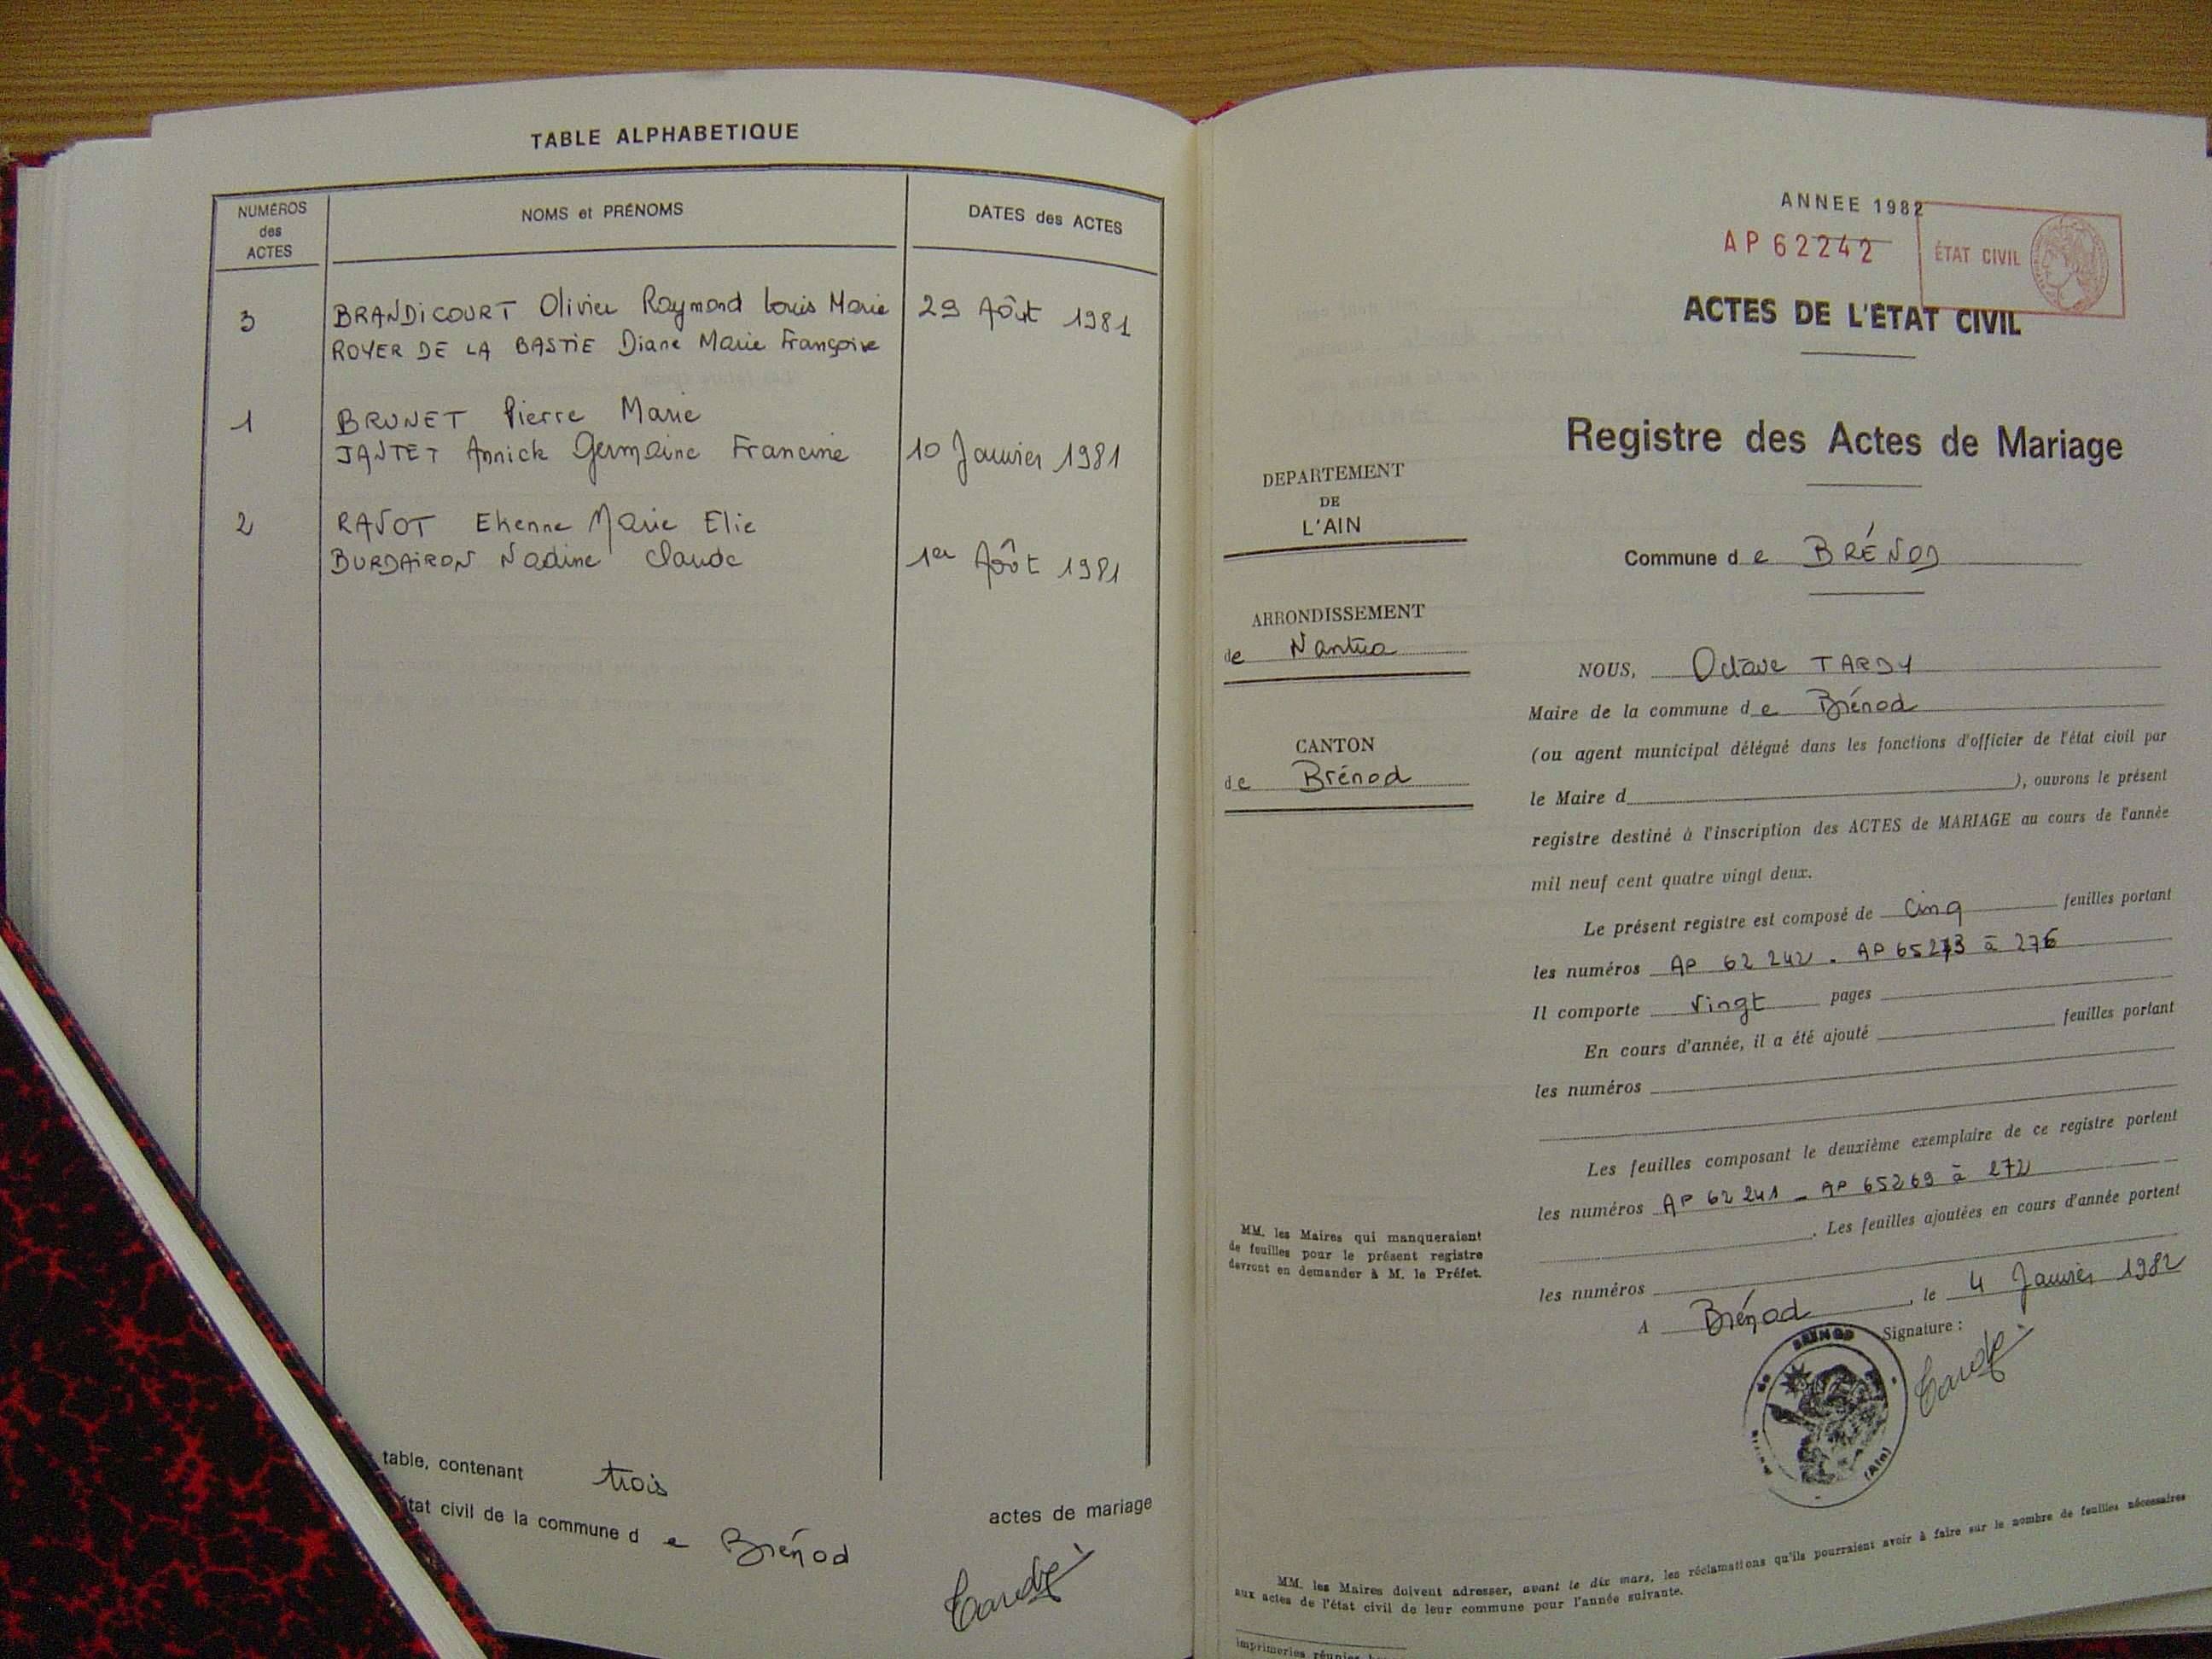 TABLE ALPHABETIQUE
NUMÉROS
des
ACTES
NOMS et PRÉNOMS
DATES des ACTES
3 BRANDICOURT Olivier Raymond Louis Marie 29 Aôut 1981
ROYER DE LA BASTIE Diane Marie Françoise
1 BRUNET Pierre Marie
JANTET Annick Germaine Francine 10 Janvier 1981
2 RAVOT Etienne Marie Elie
BURDAIRON Nadine Claude 1er Aôut 1981
table, contenant trois
actes de mariage
état civil de la commune d e Brénod
ANNEE 1982
AP 62242
ÉTAT CIVIL
ACTES DE L'ÉTAT CIVIL
Registre des Actes de Mariage
DEPARTEMENT
DE
L'AIN
Commune d e BRÉNOD
ARRONDISSEMENT
de Nantua
CANTON
de Brénod
NOUS, Octave TARDY
Maire de la commune d e Brénod
(ou agent municipal délégué dans les fonctions d'officier de l'état civil par
le Maire d ), ouvrons le présent
registre destiné à l'inscription des ACTES de MARIAGE au cours de l'année
mil neuf cent quatre vingt deux.
Le présent registre est composé de Cinq feuilles portant
les numéros AP 62 242 - AP 65273 à 276
Il comporte Vingt pages
En cours d'année, il a été ajouté feuilles portant
les numéros
Les feuilles composant le deuxième exemplaire de ce registre portent
les numéros AP 62 241 - AP 65269 à 272
. Les feuilles ajoutées en cours d'année portent
les numéros
A Brénod, le 4 Janvier 1982
Signature :
BRENOD
(Ain)
MM. les Maires qui manqueraient
de feuilles pour le présent registre
devront en demander à M. le Préfet.
MM. les Maires doivent adresser, avant le dix mars, les réclamations qu'ils pourraient avoir à faire sur le nombre de feuilles nécessaires
aux actes de l'état civil de leur commune pour l'année suivante.
imprimeries réunies